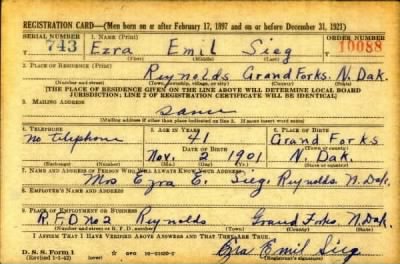 REGISTRATION CARD—(Men born on or after February 17, 1897 and on or before December 31, 1921)
SERIAL NUMBER 1. NAME (Print) ORDER NUMBER
743 Ezra Emil Sieg 10088
(First) (Middle) (Last)
2. PLACE OF RESIDENCE (Print)
Reynolds Grand Forks. N. Dak.
(Number and street) (Town, township, village, or city) (County) (State)
[THE PLACE OF RESIDENCE GIVEN ON THE LINE ABOVE WILL DETERMINE LOCAL BOARD
JURISDICTION; LINE 2 OF REGISTRATION CERTIFICATE WILL BE IDENTICAL]
3. MAILING ADDRESS
Same
[Mailing address if other than place indicated on line 2. If same insert word same]
4. TELEPHONE 5. AGE IN YEARS 6. PLACE OF BIRTH
No telephone 41 Grand Forks
DATE OF BIRTH (Town or county)
Nov. 2 1901 N. Dak.
(Exchange) (Number) (Mo.) (Day) (Yr.) (State or country)
7. NAME AND ADDRESS OF PERSON WHO WILL ALWAYS KNOW YOUR ADDRESS
Mrs Ezra E. Sieg Reynolds N. Dak.
8. EMPLOYER'S NAME AND ADDRESS
9. PLACE OF EMPLOYMENT OR BUSINESS
R.F.D No 2 Reynolds Grand Forks N. Dak.
(Number and street or R. F. D. number) (Town) (County) (State)
I AFFIRM THAT I HAVE VERIFIED ABOVE ANSWERS AND THAT THEY ARE TRUE.
D. S. S. Form 1
(Revised 1-1-42) GPO
Ezra Emil Sieg